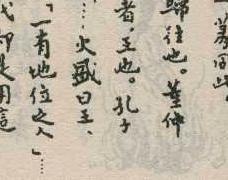 歸往也。董仲
者，王也。孔子
……火盛曰王、
「一有地位之人」……
卽是用這